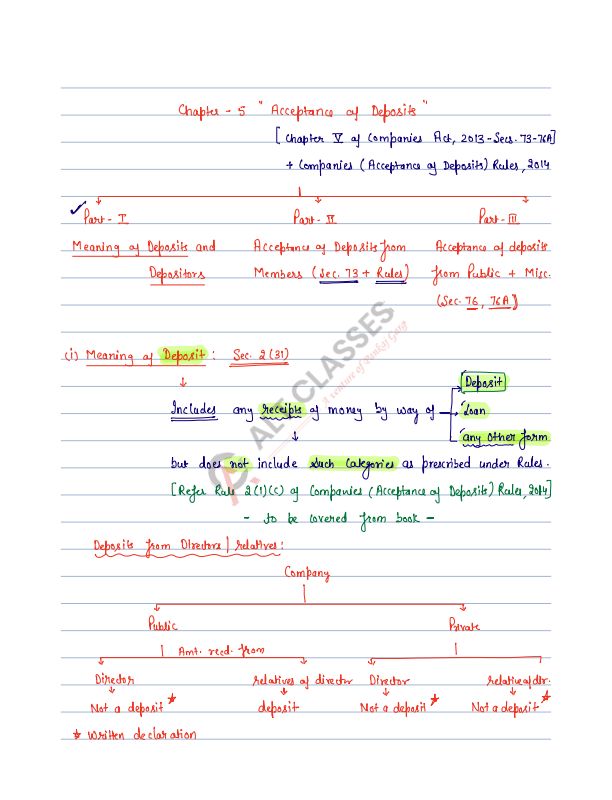 Chapter - 5 " Acceptance of Deposits "
[ Chapter V of Companies Act, 2013 - Secs. 73-76A]
+ Companies (Acceptance of Deposits) Rules, 2014
Part - I Part - II Part - III
Meaning of Deposits and Acceptance of Deposits from Acceptance of deposits
Depositors Members (Sec. 73 + Rules) from Public + Misc.
(Sec. 76, 76A)
(i) Meaning of Deposit : Sec. 2(31)
Deposit
Includes any receipts of money by way of Loan
any other form
but does not include such Categories as prescribed under Rules.
[Refer Rule 2(1)(c) of Companies (Acceptance of Deposits) Rules, 2014]
- to be covered from book -
Deposits from Directors | relatives :
Company
Public Private
Amt. recd. from
Director relatives of director Director relative of dir.
Not a deposit * deposit Not a deposit * Not a deposit *
* Written declaration
ALT CLASSES
A venture of Pankaj Garg